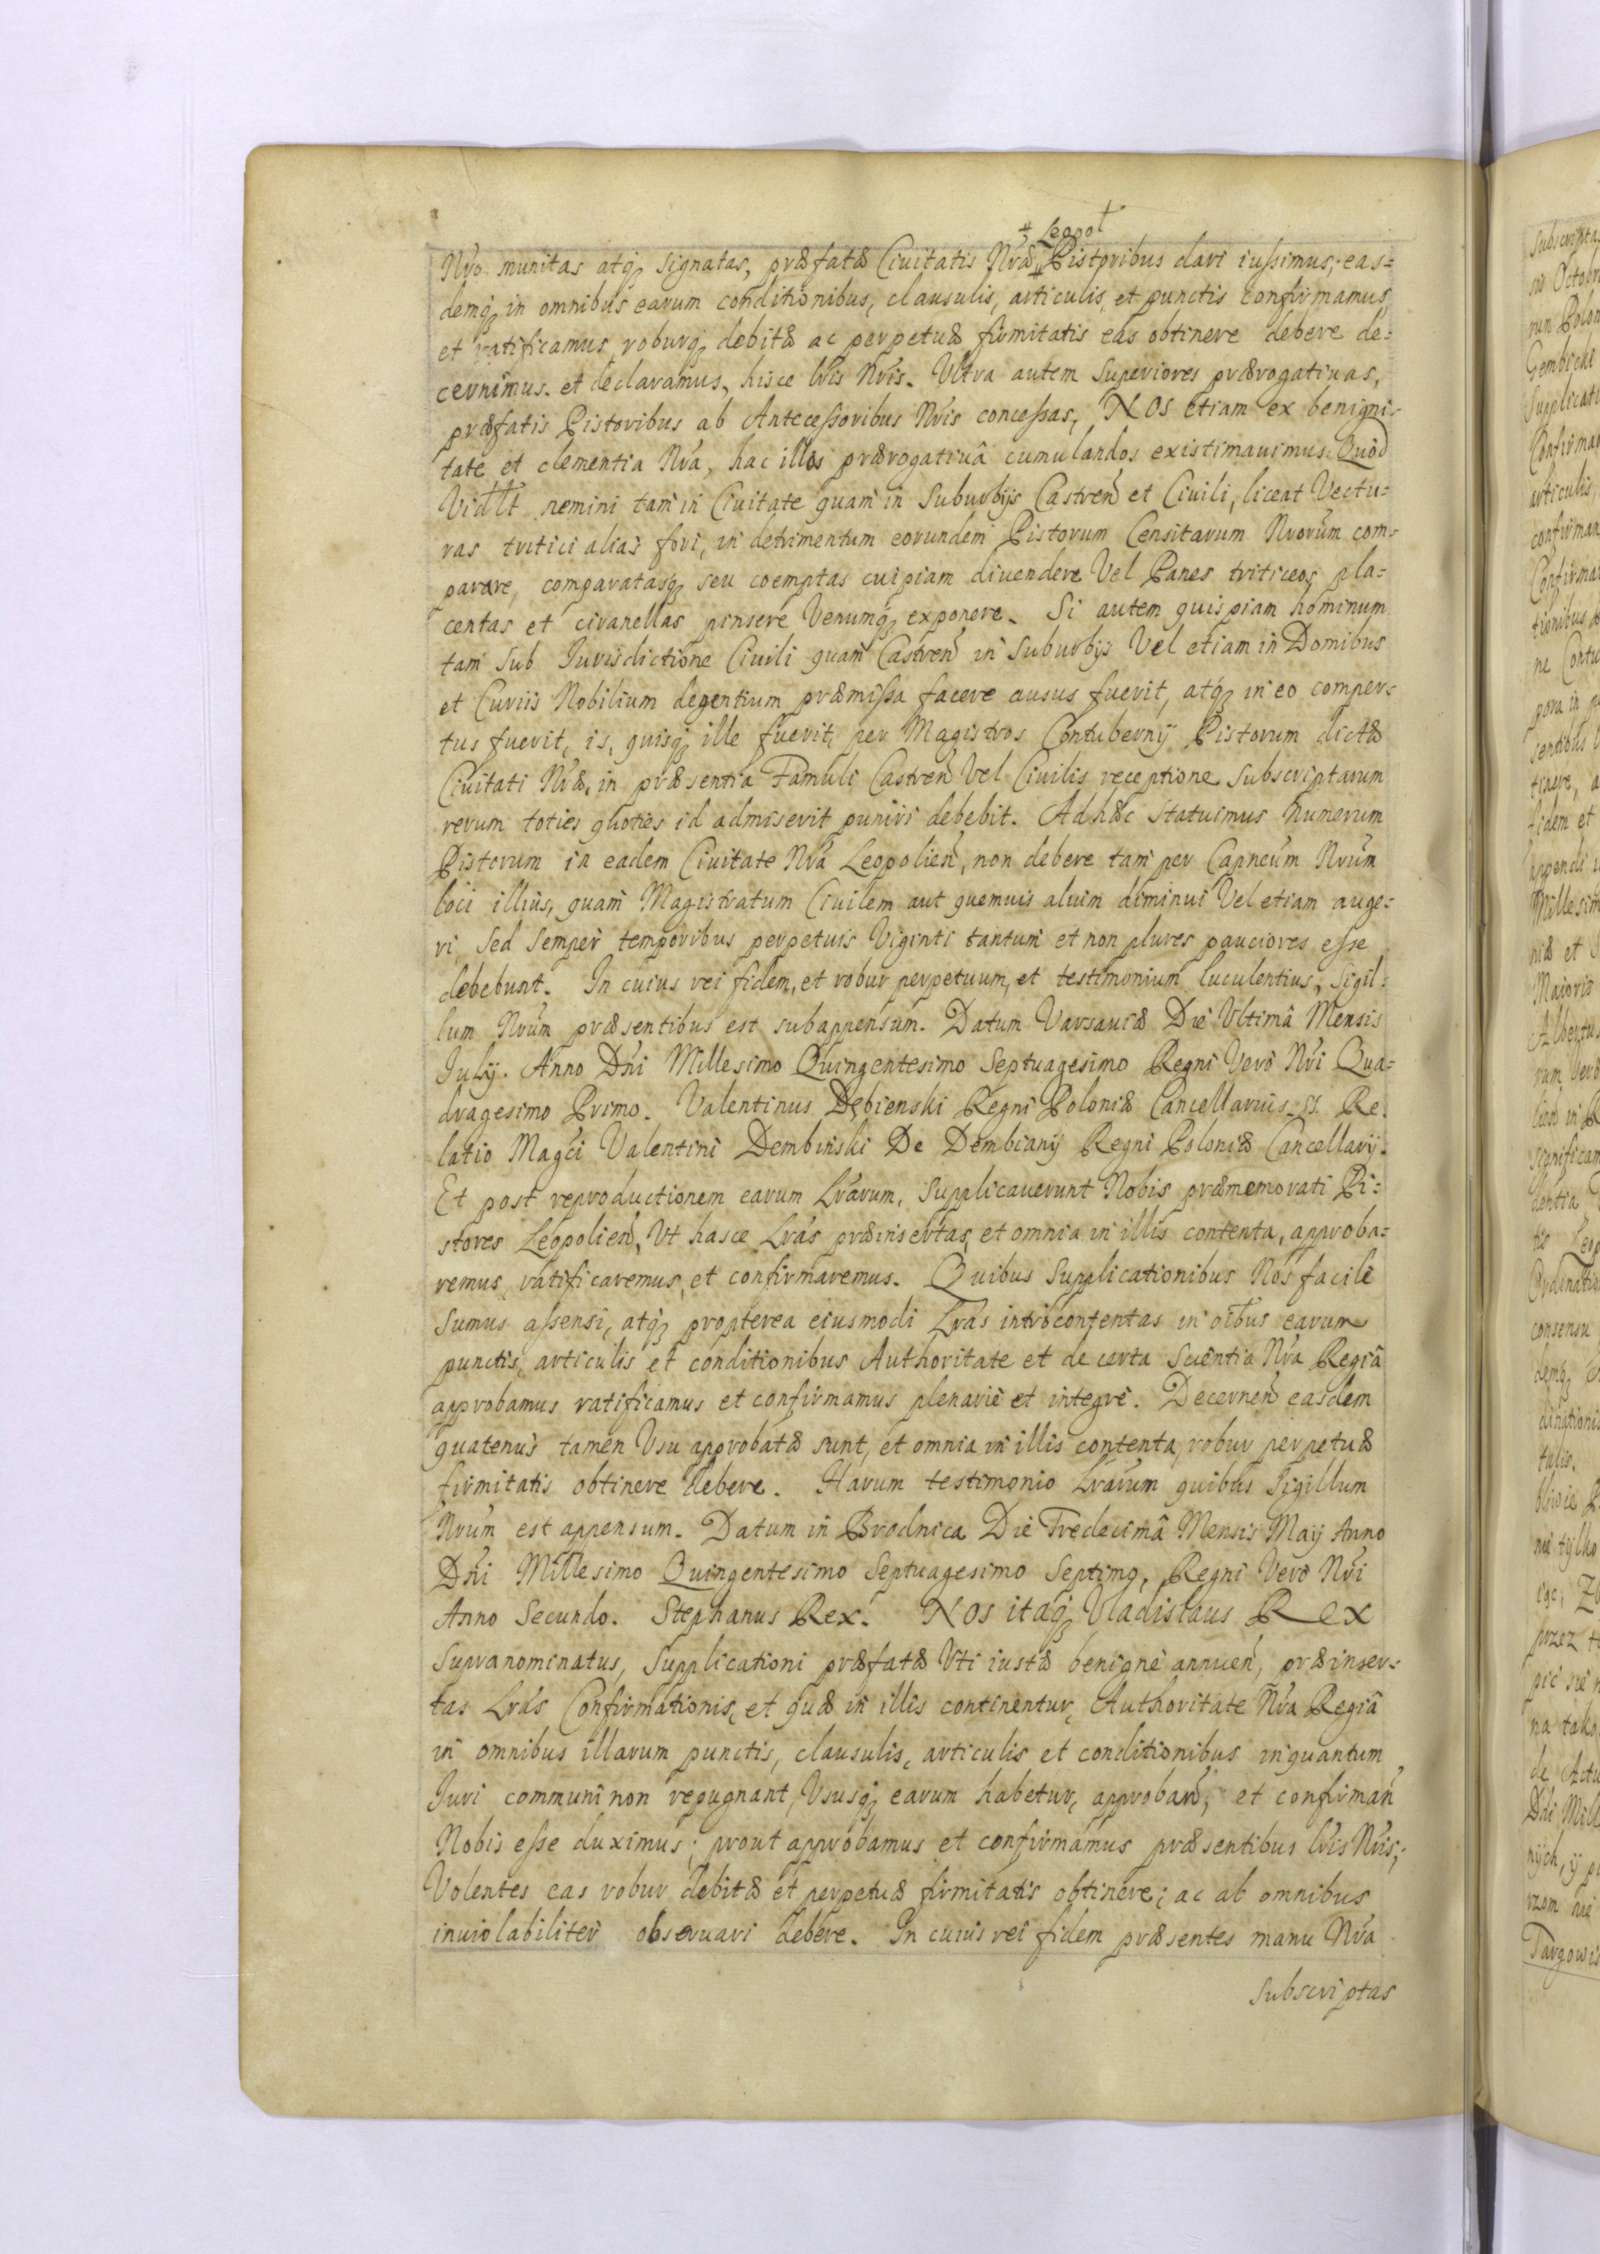 ‡ Leopol
Nro munitas atq; signatas, præfatæ Ciuitatis Nræ ‡ Pistoribus dari iussimus, eas=
demq; in omnibus earum conditionibus, clausulis, articulis, et punctis confirmamus,
et ratificamus roburq; debitæ ac perpetuæ firmitatis eas obtinere debere de=
cernimus et declaramus, hisce lris Nris. Vltra autem superiores prærogatiuas,
præfatis Pistoribus ab Antecessoribus Nris concessas, NOS etiam ex benigni=
tate et clementia Nra, hac illos prærogatiuâ cumulandos existimauimus. Quòd
Vidlt nemini tam in Ciuitate quam in Suburbijs Castren et Ciuili, liceat Vectu=
ras tritici alias fori, in detrimentum eorundem Pistorum Censitarum Nrorum com=
parare, comparatasq; seu coemptas cuipiam diuendere Vel Panes triticeos, pla=
centas et ciranellas pinsere Venumq; exponere. Si autem quispiam hominum
tam sub Jurisdictione Ciuili quam Castren in Suburbijs Vel etiam in Domibus
et Curiis Nobilium degentium præmissa facere ausus fuerit, atq; in eo comper=
tus fuerit, is, quisq; ille fuerit, per Magistros Contubernij Pistorum dictæ
Ciuitati Nræ, in præsentia Famuli Castren Vel Ciuilis receptione subscriptarum
rerum toties quoties id admiserit puniri debebit. Ad hæc statuimus Numerum
Pistorum in eadem Ciuitate Nra Leopolien, non debere tam per Capneum Nrum
loci illius, quam Magistratum Ciuilem aut quemuis alium diminui Vel etiam auge=
ri, sed semper temporibus perpetuis Viginti tantum et non plures pauciores esse
debebunt. In cuius rei fidem, et robur perpetuum, et testimonium luculentius, Sigil=
lum Nrum præsentibus est subappensum. Datum Varsauiæ Die Vltimâ Mensis
July. Anno Dni Millesimo Quingentesimo Septuagesimo Regni Verò Nri Qua=
dragesimo Primo. Valentinus Dębienski Regni Poloniæ Cancellarius. ss. Re=
latio Magci Valentini Dembinski De Dembiany Regni Poloniæ Cancellarij.
Et post reproductionem earum Lrarum, supplicauerunt Nobis præmemorati Pi=
stores Leopolien, Vt hasce Lras præinsertas, et omnia in illis contenta, approba=
remus, ratificaremus, et confirmaremus. Quibus Supplicationibus Nos facilè
sumus assensi, atq; propterea eiusmodi Lras introcontentas in oibus earum
punctis, articulis et conditionibus Authoritate et de certa scientia Nra Regiâ
approbamus ratificamus et confirmamus plenariè et integrè. Decernen easdem
quatenus tamen Vsu approbatæ sunt, et omnia in illis contenta, robur perpetuæ
firmitatis obtinere debere. Harum testimonio Lrarum quibus Sigillum
Nrum est appensum. Datum in Brodnica Die Tredecimâ Mensis Maij Anno
Dni Millesimo Quingentesimo Septuagesimo Septimo, Regni Verò Nri
Anno Secundo. Stephanus Rex. NOS itaq; Vladislaus Rex
supranominatus, Supplicationi præfatæ Vti iustæ benignè annuen, præinser=
tas Lras Confirmationis, et quæ in illis continentur, Authoritate Nra Regiâ
in omnibus illarum punctis, clausulis, articulis et conditionibus inquantum
Juri communi non repugnant, Vsusq; earum habetur, approban, et confirman
Nobis esse duximus; prout approbamus et confirmamus præsentibus lris Nris;
Volentes eas robur debitæ et perpetuæ firmitatis obtinere; ac ab omnibus
inuiolabiliter obseruari debere. In cuius rei fidem præsentes manu Nra
subscriptas